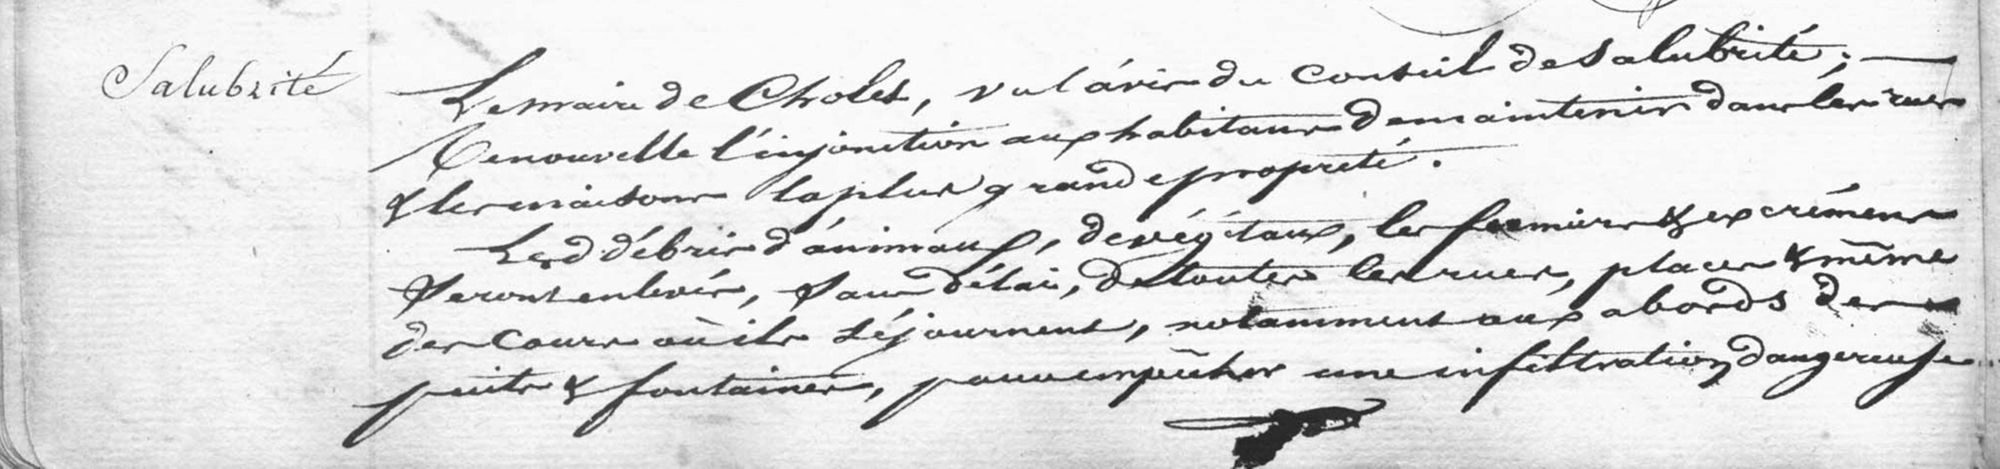 Salubrité
Le maire de Cholet, vu l'avis du Conseil de Salubrité;
Renouvelle l'injonction aux habitans de maintenir dans les rues
& les maisons la plus grande propreté.
Les débris d'animaux, de végétaux, les fumiers & excrémens
seront enlevés, sans délai, de toutes les rues, places & même
des Cours où ils séjournent, notamment aux abords des
puits & fontaines, pour empêcher une infiltration dangereuse